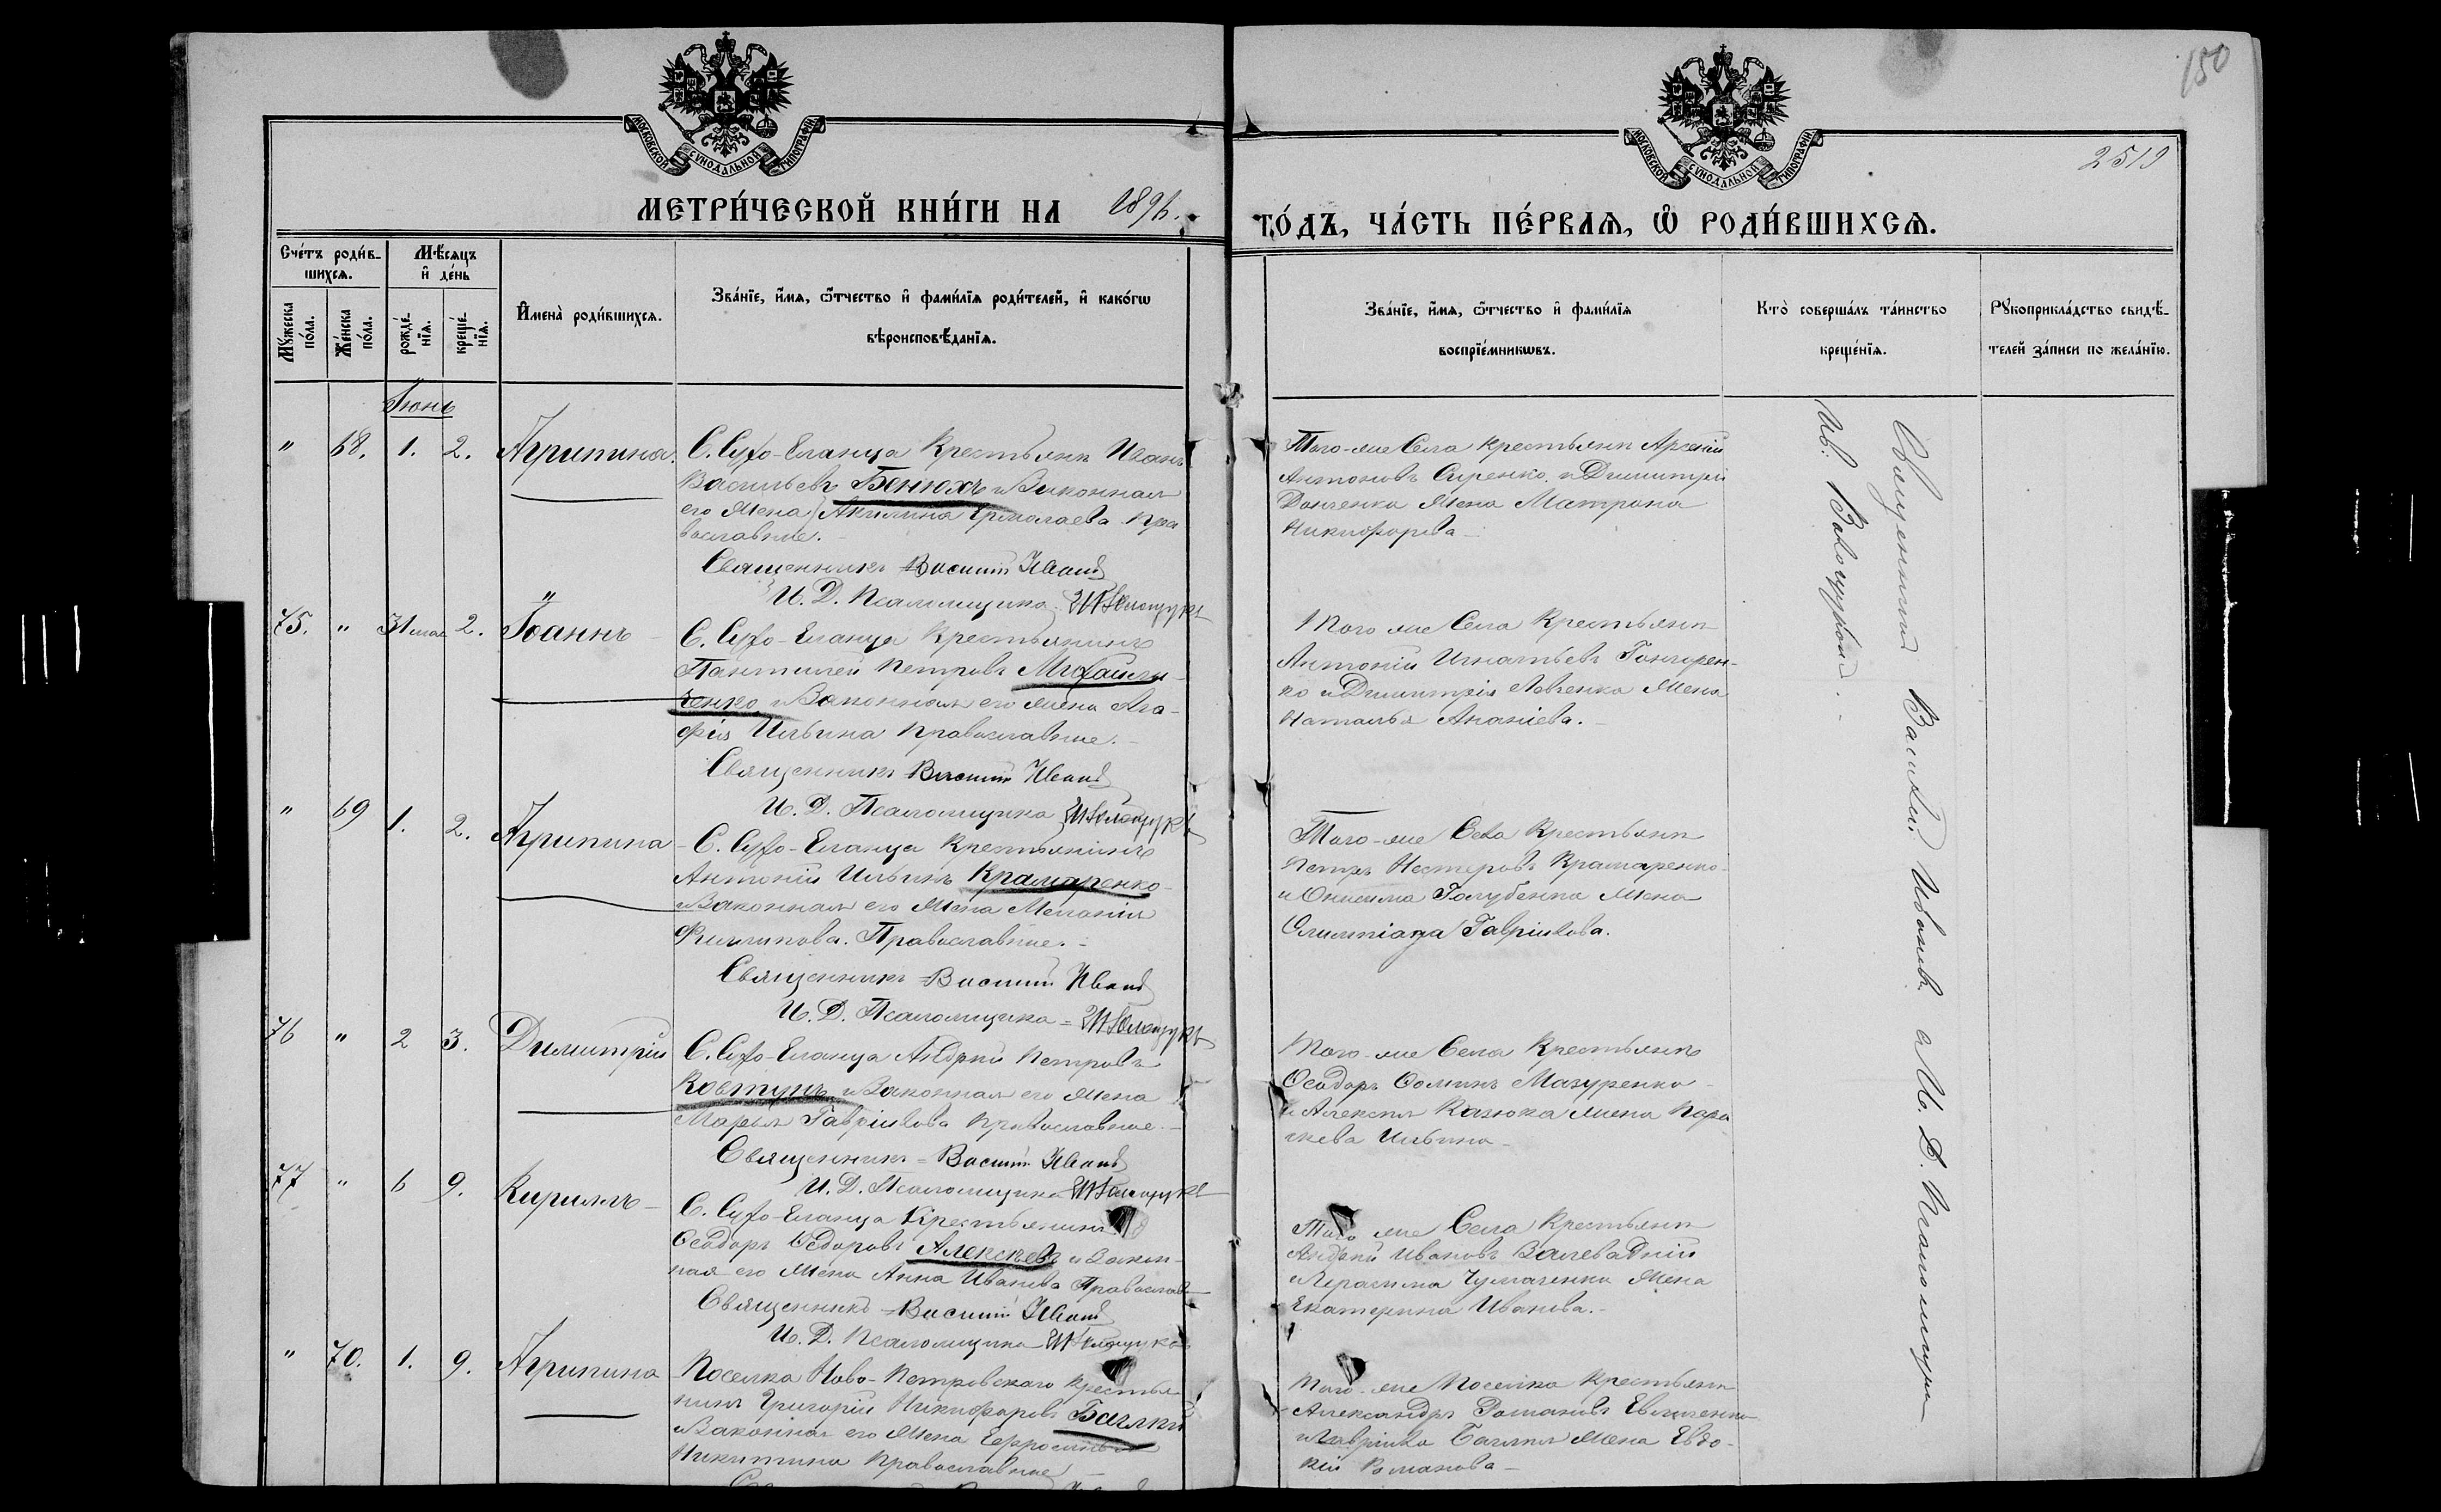 150
МОСКОВСКОЙ СѴНОДАЛЬНОЙ ТИПОГРАФІИ
МОСКОВСКОЙ СѴНОДАЛЬНОЙ ТИПОГРАФІИ
2519
МЕТРИ́ЧЕСКОЙ КНИ́ГИ НА 1896.
ГО́ДЪ, ЧА́СТЬ ПЕ́РВАѦ, Ѿ РОДИ́ВШИХСѦ.
Сче́тъ роди́вшихсѧ.
Мѣ́сѧцъ и҆ де́нь
Мꙋ́жеска по́ла.
Же́нска по́ла.
рожде́нїѧ.
креще́нїѧ.
И҆мена̀ роди́вшихсѧ.
Зва́нїе, и҆́мѧ, ѻ҆́тчество и҆ фами́лїѧ роди́телей, и҆ како́гѡ
вѣроисповѣ́данїѧ.
Зва́нїе, и҆́мѧ, ѻ҆́тчество и҆ фами́лїѧ
воспрїе́мникѡвъ.
Кто̀ соверша́лъ та́инство
креще́нїѧ.
Рꙋкоприкла́дство свидѣ́-
телей за́писи по жела́нїю.
Іюнь
" 68. 1. 2. Агрипина.
С. Сухо-Еланца Крестьянин Иванъ
Васильевъ Бенюхъ и Законная
его Жена Акилина Ермолаева Пра
вославные.
Священникъ Василий Иванов
И. Д. Псаломщика
Того-же Села Крестьянин Арсений
Антоновъ Сиренко и Димитрія
Донченка Жена Матрона
Никифорова
75. " 31 мая 2. Іоаннъ
С. Сухо-Еланца Крестьянинъ
Пантилей Петровъ Михайли-
ченко и Законная его Жена Ага-
фія Ильина Православные.
Священникъ Василий Иванов
И. Д. Псаломщика
Того же Села Крестьянин
Антоній Игнатьевъ Гончарен-
ко и Димитрія Жена
Наталья Ананіева.
" 69 1. 2. Агрипина
С. Сухо-Еланца Крестьянинъ
Антоній Ильинъ Крамаренко
и Законная его Жена Меланія
Филипова. Православные.
Священникъ Василий Иванов
И. Д. Псаломщика
Того-же Села Крестьянин
Петръ Нестеровъ Крамаренко
и Онисима Голубенка Жена
Олимпіада Гавріилова.
76 " 2 3. Димитрій
С. Сухо-Еланца Андрей Петровъ
Ковтунъ и Законная его Жена
Марья Гавріилова Православные.
Священникъ Василий Иванов
И. Д. Псаломщика
Того-же Села Крестьянинъ
Ѳеодоръ Ѳоминъ Мазуренко
и Алексѣя Казюка Жена Пара
скева Ильина
77 " 6 9. Кириллъ
С. Сухо-Еланца Крестьянинъ
Ѳеодоръ Ѳедоровъ Алексѣевъ и Закон-
ная его Жена Анна Иванова Православ
Священникъ Василий Иванов
И. Д. Псаломщика
Того же Села Крестьянин
Андрей Ивановъ
и Герасима Чумаченка Жена
Екатерина Иванова.
" 70. 1. 9. Агрипина
Поселка Ново-Петровскаго Крестья
нинъ Григорій Никифоровъ
и Законная его Жена Ефросинья
Никитина Православные
Того-же Поселка Крестьянин
Александръ Романовъ
и Гавріила Жена Евдо-
кія Романова
Священникъ Василий Ивановъ и И. Д. Псаломщика
Ив.